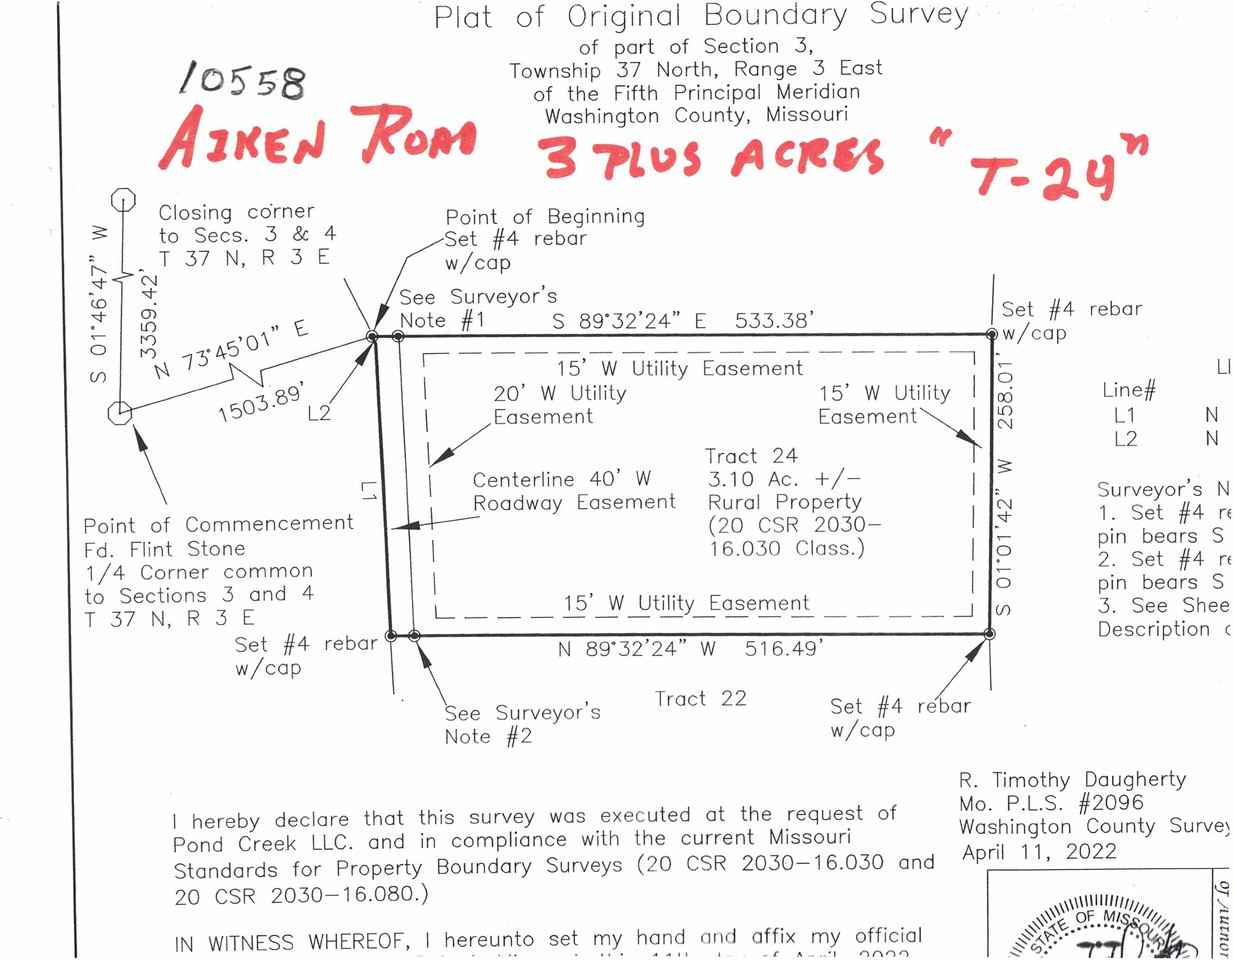 Plat of Original Boundary Survey
of part of Section 3,
Township 37 North, Range 3 East
of the Fifth Principal Meridian
Washington County, Missouri
10558
AIKEN ROAD 3 PLUS ACRES "T-24"
Closing corner
to Secs. 3 & 4
T 37 N, R 3 E
Point of Beginning
Set #4 rebar
w/cap
See Surveyor's
Note #1
S 89°32'24" E 533.38'
Set #4 rebar
w/cap
S 01°46'47" W
3359.42'
N 73°45'01" E
1503.89'
L2
L1
15' W Utility Easement
20' W Utility
Easement
15' W Utility
Easement
S 01°01'42" W 258.01'
Centerline 40' W
Roadway Easement
Tract 24
3.10 Ac. +/-
Rural Property
(20 CSR 2030-
16.030 Class.)
15' W Utility Easement
Point of Commencement
Fd. Flint Stone
1/4 Corner common
to Sections 3 and 4
T 37 N, R 3 E
Set #4 rebar
w/cap
N 89°32'24" W 516.49'
See Surveyor's
Note #2
Tract 22
Set #4 rebar
w/cap
LI
Line#
L1 N
L2 N
Surveyor's N
1. Set #4 re
pin bears S
2. Set #4 re
pin bears S
3. See Shee
Description
R. Timothy Daugherty
Mo. P.L.S. #2096
Washington County Survey
April 11, 2022
I hereby declare that this survey was executed at the request of
Pond Creek LLC. and in compliance with the current Missouri
Standards for Property Boundary Surveys (20 CSR 2030-16.030 and
20 CSR 2030-16.080.)
IN WITNESS WHEREOF, I hereunto set my hand and affix my official
STATE OF MISSOURI